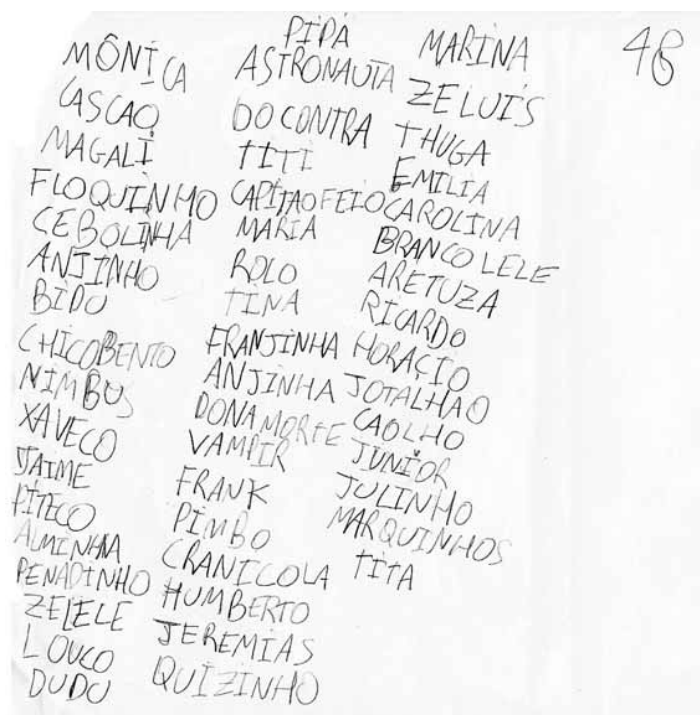 MÔNICA
CASCAO
MAGALI
FLOQUINHO
CEBOLINHA
ANJINHO
BIDU
CHICOBENTO
NIMBUS
XAVECO
JAIME
PITECO
ALMINHA
PENADINHO
ZELELE
LOUCO
DUDU
PIPA
ASTRONAUTA
DO CONTRA
TITI
CAPITAO FEIO
MARIA
ROLO
TINA
FRANJINHA
ANJINHA
DONA MORTE
VAMPIR
FRANK
PIMBO
CRANICOLA
HUMBERTO
JEREMIAS
QUIZINHO
MARINA
ZE LUIS
THUGA
EMILIA
CAROLINA
BRANCO LELE
ARETUZA
RICARDO
HORAÇIO
JOTALHAO
CAOLHO
JUNIOR
JULINHO
MARQUINHOS
TITA
48